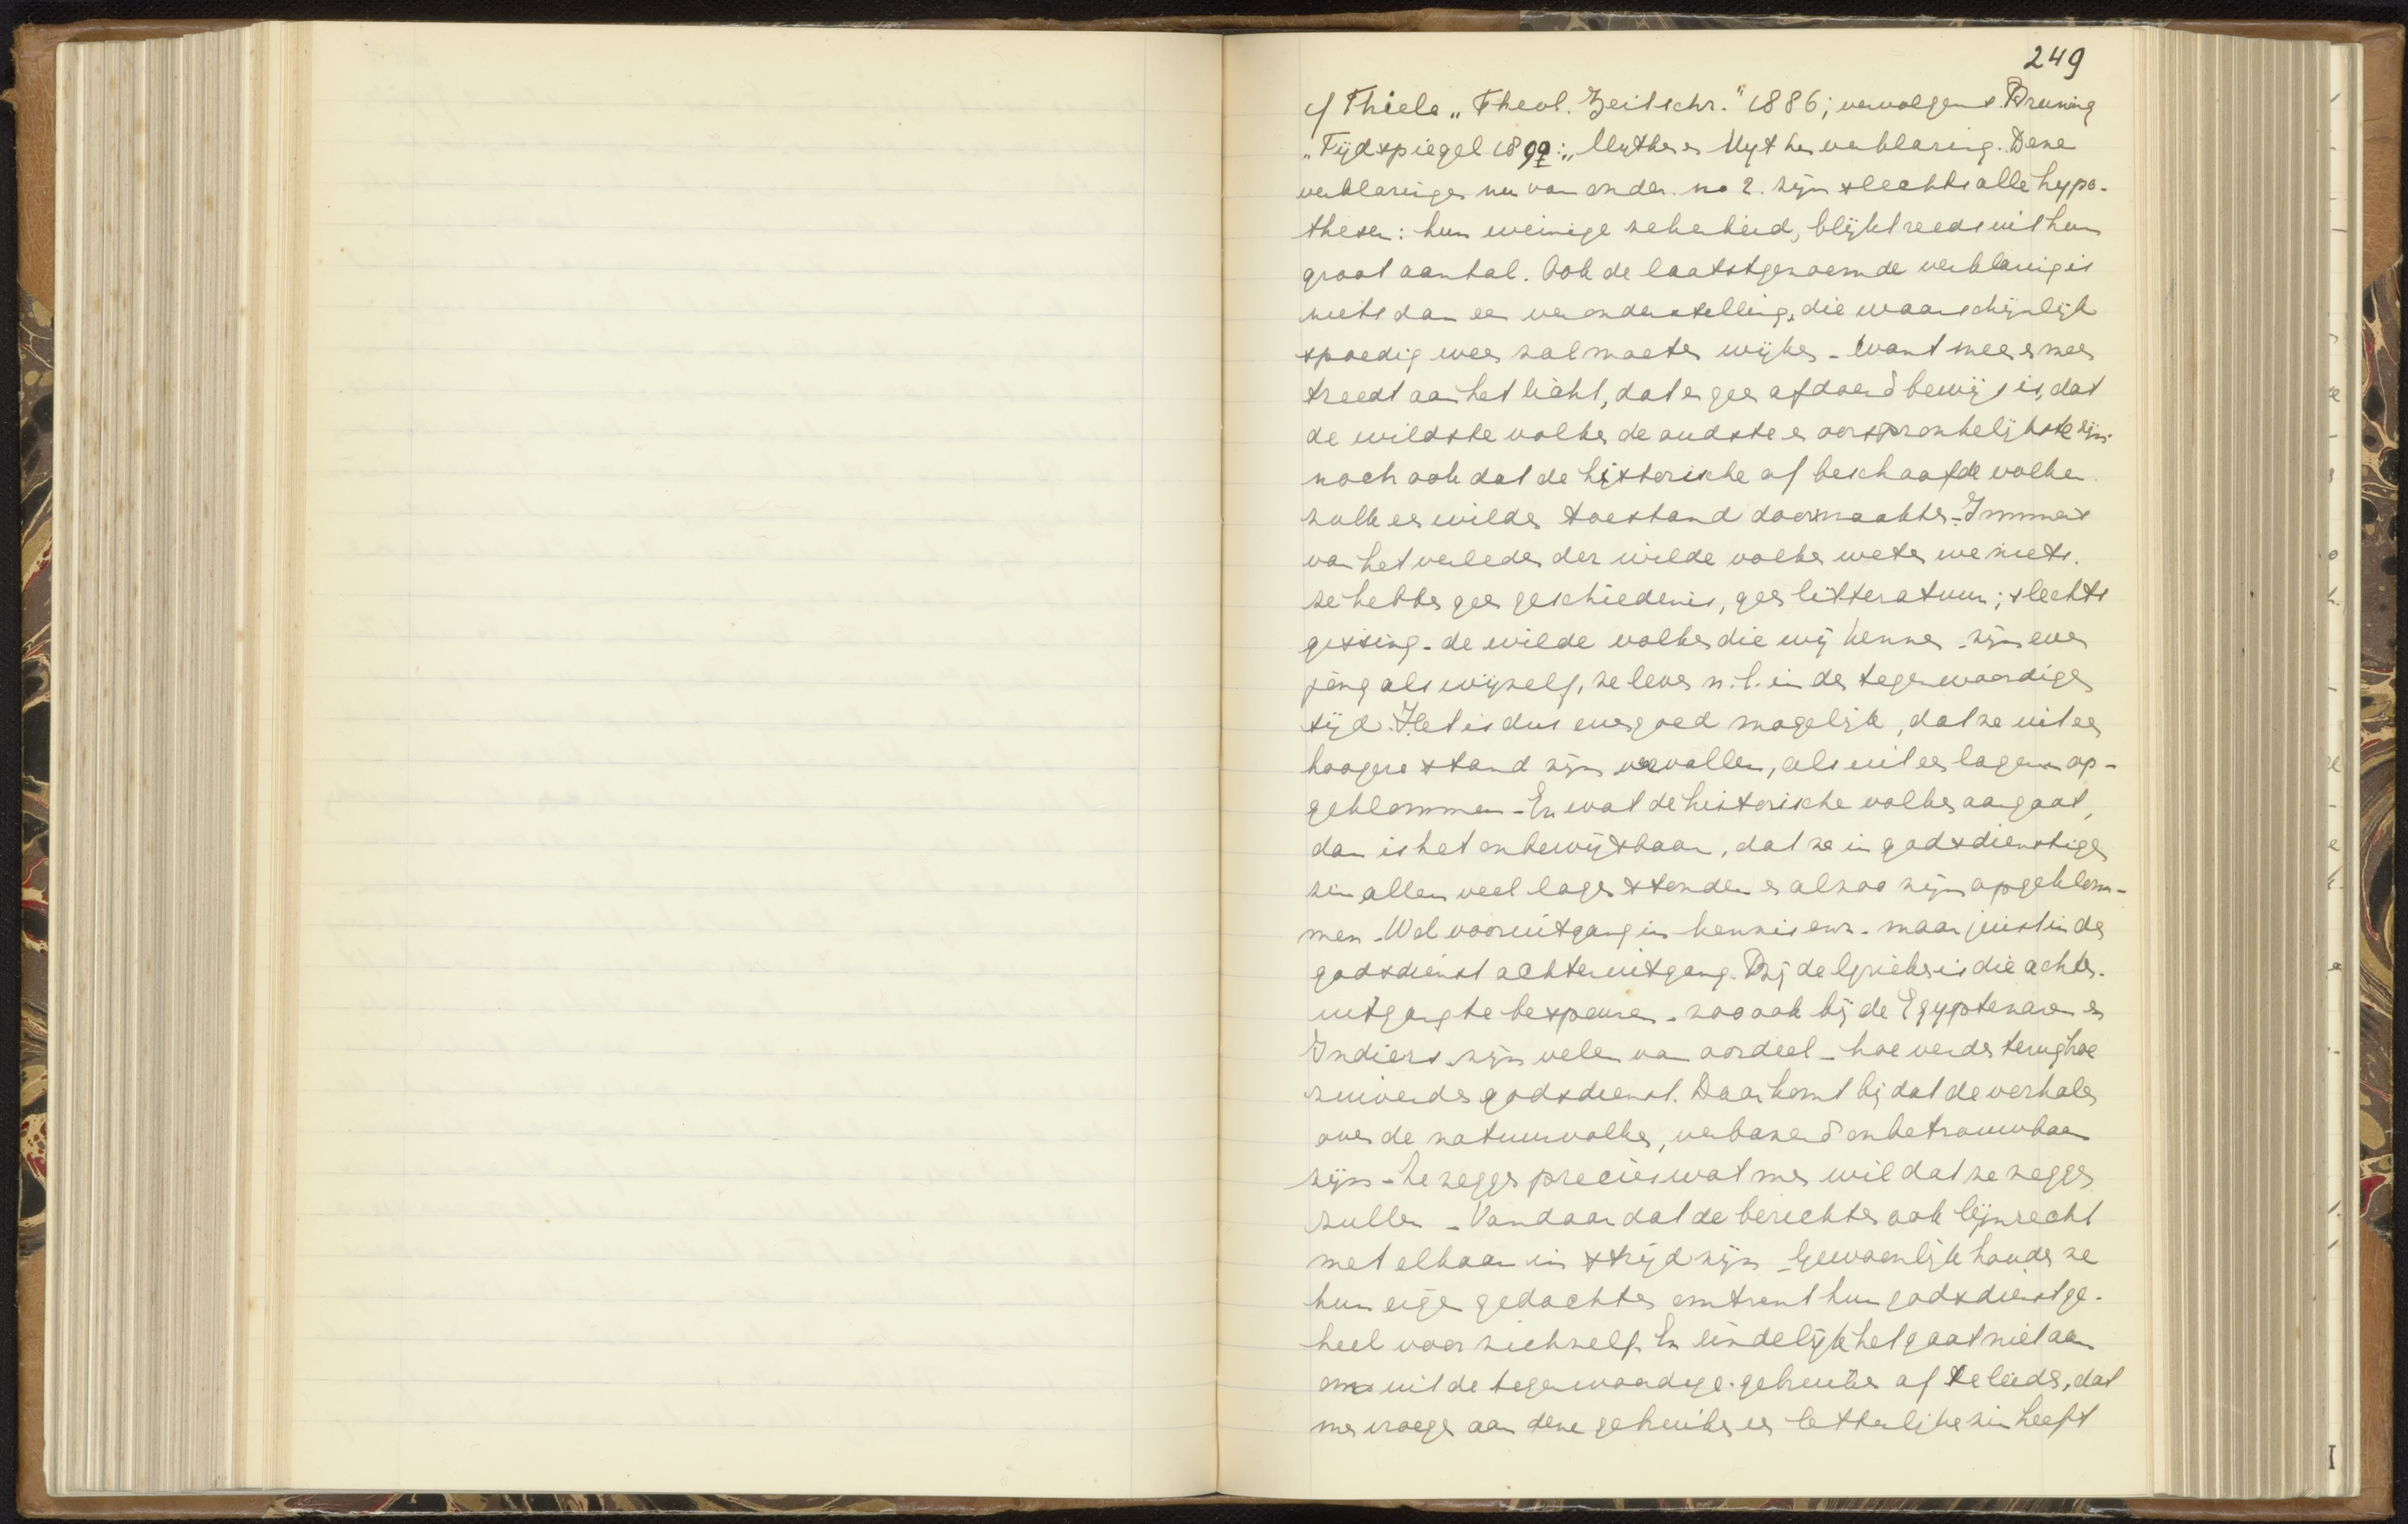 249
cf Thiele „Theol. Zeitschr." 1886; vervolgens Bruning
„Tijdspiegel 1899: „Mythe en Mythenverklaring. Deze
verklaringen nu van onder no 2. zijn slechts alle hypo-
thesen: hun weinige zekerheid, blijkt reeds uit hun
groot aantal. Ook de laatstgenoemde verklaring is
niets dan een veronderstelling, die waarschijnlijk
spoedig weer zal moeten wijken - Want meer en meer
treedt aan het licht, dat er geen afdoend bewijs is, dat
de wildste volken de oudste en oorspronkelijkste zijn
noch ook dat de historische of beschaafde volken
zulk een wilden toestand doormaakten - Immers
van het verleden der wilde volken weten we niets.
ze hebben geen geschiedenis, geen litteratuur; slechts
gissing - de wilde volken die wij kennen - zijn even
jong als wijzelf, ze leven n.l. in den tegenwoordigen
tijd. Het is dus evengoed mogelijk, dat ze uit een
hoogere stand zijn vervallen, als uit een lageren op-
geklommen - En wat de historische volken aangaat,
dan is het onbewijsbaar, dat ze in godsdienstigen
zin allen veel lager stonden en alzoo zijn opgeklom-
men - Wel vooruitgang in kennis enz. maar juist in den
godsdienst achteruitgang. Bij de Grieken is die achter-
uitgang te bespeuren - zoo ook bij de Egyptenaren en
Indiers zijn velen van oordeel - hoe verder terug hoe
zuiverder godsdienst. Daar komt bij dat de verhalen
over de natuurvolken, verbazend onbetrouwbaar
zijn - Ze zeggen precies wat men wil dat ze zeggen
zullen - Vandaar dat de berichten ook lijnrecht
met elkaar in strijd zijn - Gewoonlijk houden ze
hun eigen gedachten omtrent hun godsdienst ge-
heel voor zichzelf. En eindelijk het gaat niet aan
om uit de tegenwoordige gebruiken af te leiden, dat
men vroeger aan deze gebruiken een letterlijken zin heeft